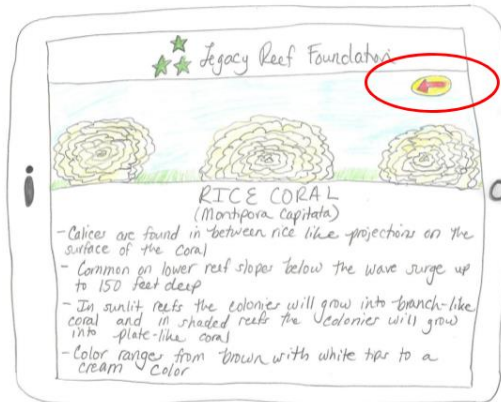 Legacy Reef Foundation
RICE CORAL
(Montipora Capitata)
- Calices are found in between rice like projections on the
surface of the coral
- Common on lower reef slopes below the wave surge up
to 150 feet deep
- In sunlit reefs the colonies will grow into branch-like
coral and in shaded reefs the colonies will grow
into plate-like coral
- Color ranges from brown with white tips to a
cream color